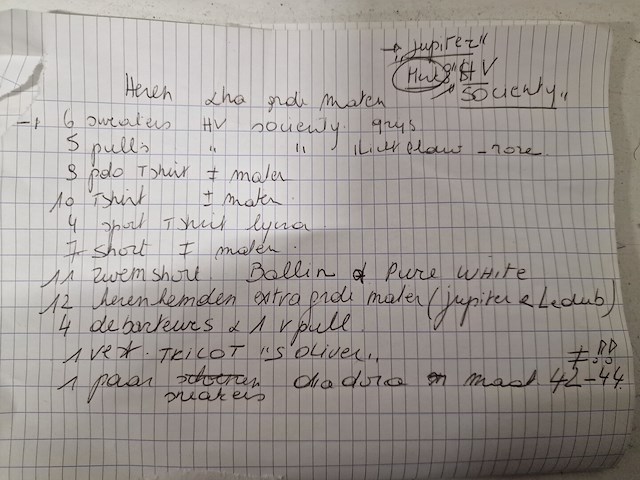 → "Jupiter"
HV
"Society"
Heren extra grote maten
→ 6 sweaters HV Society grys
5 pulls " " licht blauw - roze
polo Tshirt ≠ maten
10 Tshirt ≠ maten
4 sport Tshirt lycra
7 short ≠ maten
11 zwemshort Ballin & Pure WHITE
12 herenhemden extra grote maten (jupiter & Ledub)
4 debardeurs & 1 v pull
1 vest. TRICOT "S Oliver"
1 paar sneakers diadora maat 42-44